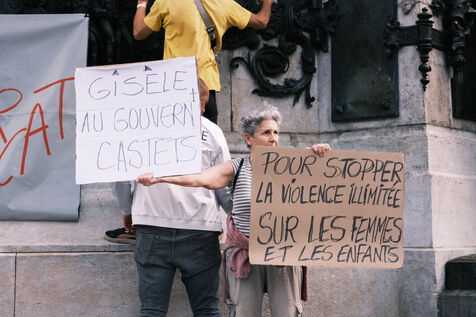 RAT
GISÈLE
AU GOUVERNT
CASTETS
POUR STOPPER
LA VIOLENCE ILLIMITÉE
SUR LES FEMMES
ET LES ENFANTS